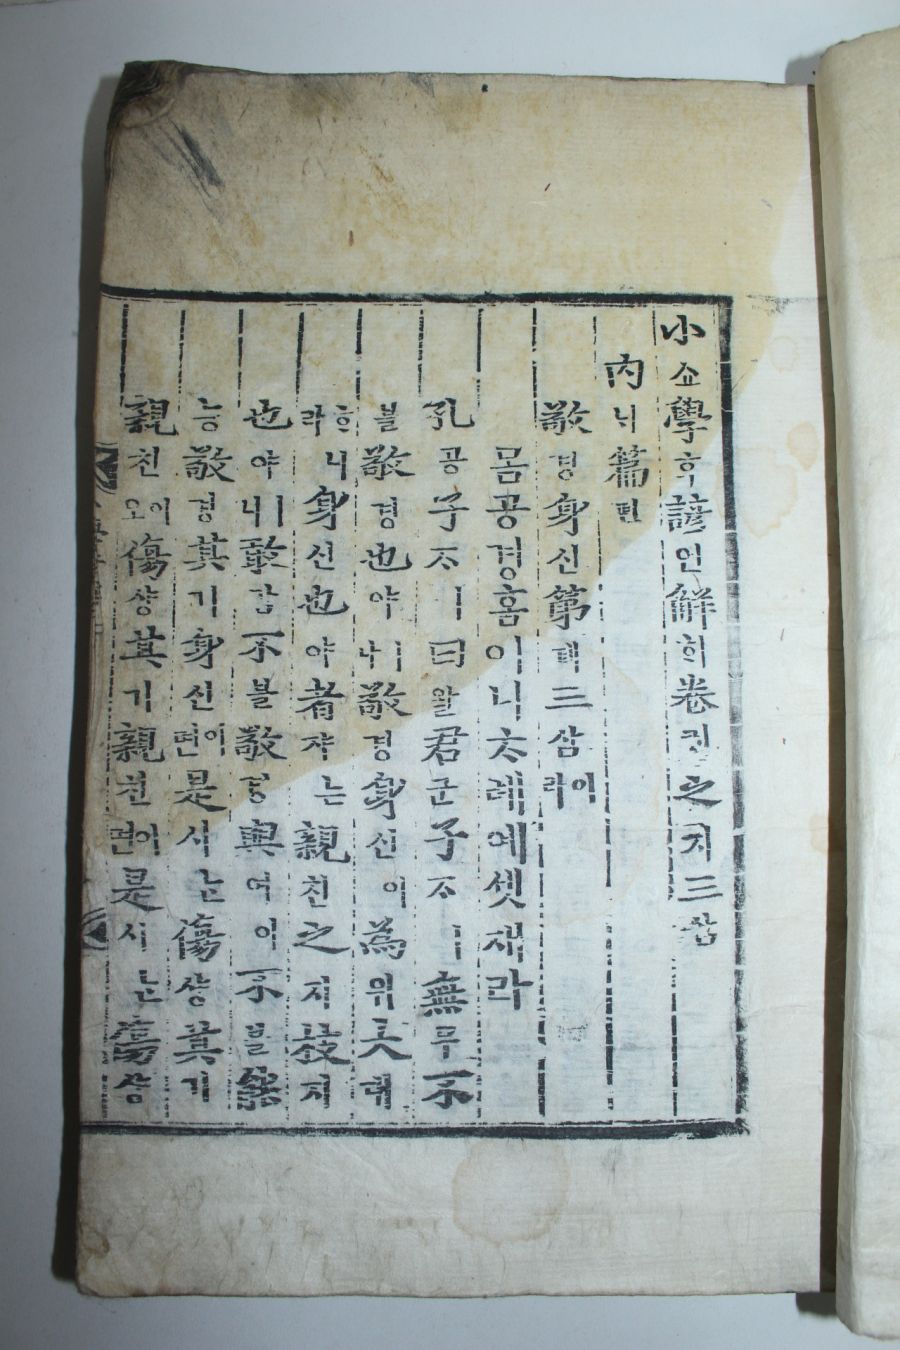 小쇼學ᄒᆞᆨ諺언解ᄒᆡ卷권之지三삼
內ᄂᆡ篇편
敬경身신第뎨三삼이라
몸공경홈이니ᄎᆞ례예셋재라
孔공子ᄌᆞㅣ曰왈君군子ᄌᆞㅣ無무不
블敬경也야ㅣ나敬경身신이爲위大대
ᄒᆞ니라身신也야者쟈ᄂᆞᆫ親친之지枝지
也야ㅣ니敢감不블敬경與여이不블能
능敬경其기身신이면是시ᄂᆞᆫ傷샹其기
親친이오傷샹其기親친이면是시ᄂᆞᆫ傷샹